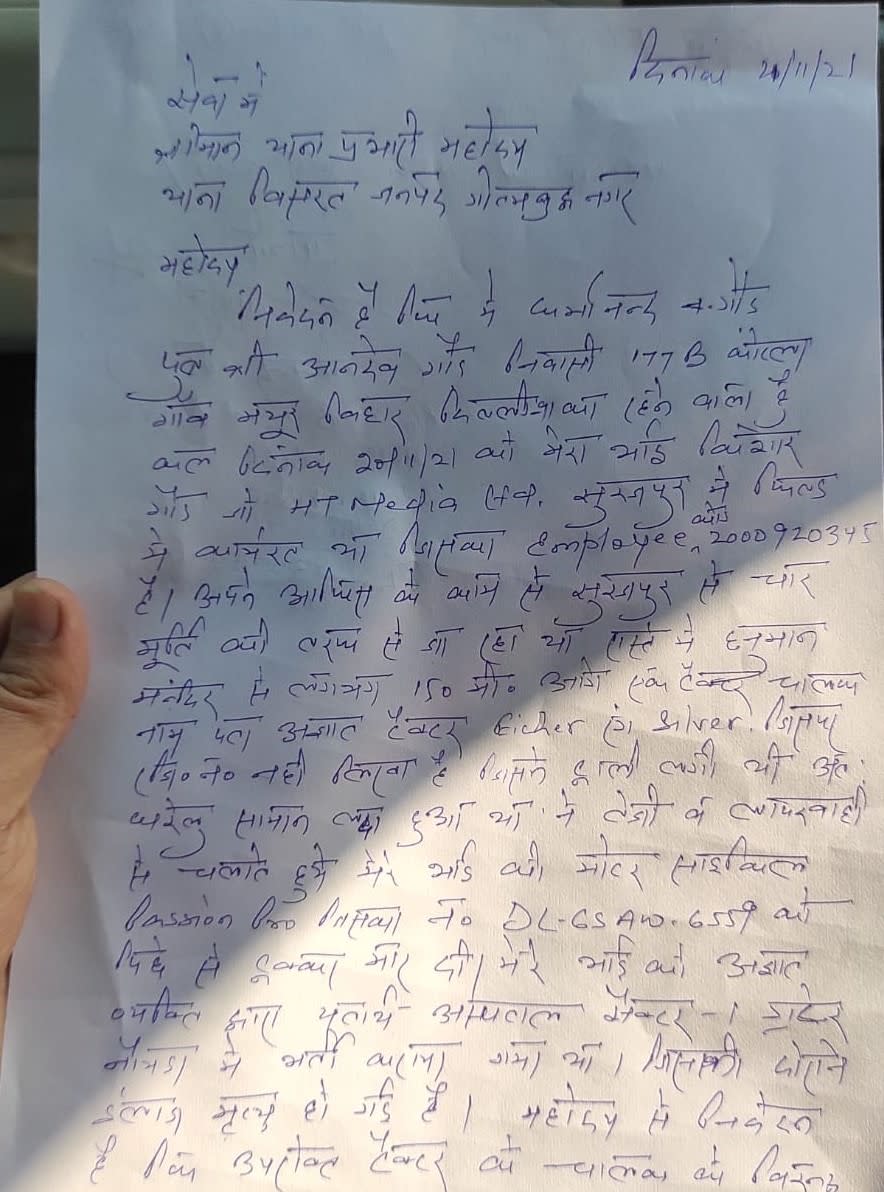 दिनांक 21/11/21
सेवा में
श्रीमान थाना प्रभारी महोदय
थाना बिसरख जनपद गौतमबुद्ध नगर
महोदय
निवेदन है कि मै धर्मानन्द गौड
पुत्र श्री आनदेव गौड निवासी 177 B कोटला
गाँव मयूर विहार दिल्ली का रहने वाला है
कल दिनांक 20/11/21 को मेरा भाई किशोर
गौड जो HT Media सुरजपुर मे फिल्ड
मे कार्यरत था जिसका Employee कोड 2000920345
है। अपने आफिस के काम से सुरजपुर से चार
मूर्ति की तरफ से जा रहा था रास्ते मे हनुमान
मन्दिर से लगभग 150 मी० आगे एक टैक्टर चालक
नाम पता अज्ञात टैक्टर Eicher रंग Silver. जिसपर
रजि० न० नही लिखा है जिसमे ट्राली लगी थी
घरेलु सामान लदा हुआ था ने तेजी व लापरवाही
से चलाते हुये मेरे भाई की मोटर साइकिल
Pro जिसका न० DL-6S AW. 6559 को
पिछे से टक्कर मार दी। मेरे भाई को अज्ञात
व्यक्ति द्वारा यथार्थ अस्पताल सैक्टर-1 ग्रेटर
नौयडा मे भर्ती कराया गया था। जिसकी दौराने
ईलाज मृत्यु हो गई है। महोदय से निवेदन
है कि उपरोक्त टैक्टर के चालक के विरुद्ध